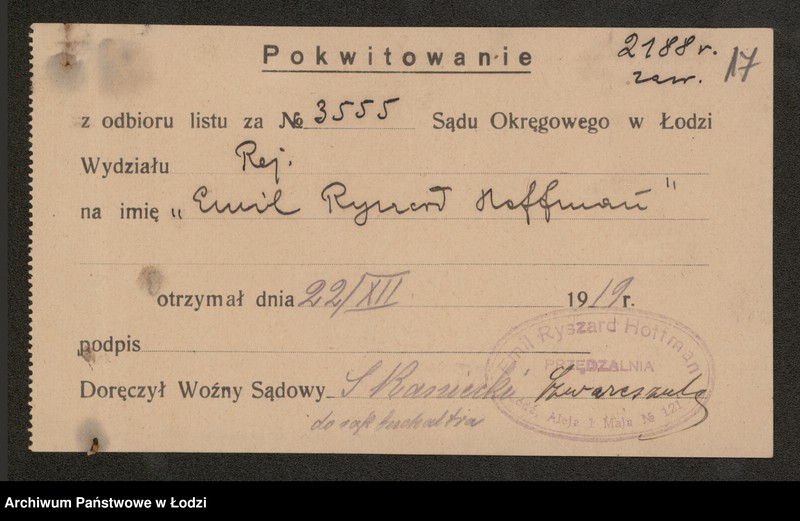 Pokwitowanie
2188 r.
zaw.
17
z odbioru listu za № 3555 Sądu Okręgowego w Łodzi
Wydziału Rej.
na imię „Emil Ryszard Hoffman"
otrzymał dnia 22/XII 1919 r.
podpis
Doręczył Woźny Sądowy
Emil Ryszard Hoffman
PRZĘDZALNIA
Aleja 1 Maja № 121
Archiwum Państwowe w Łodzi